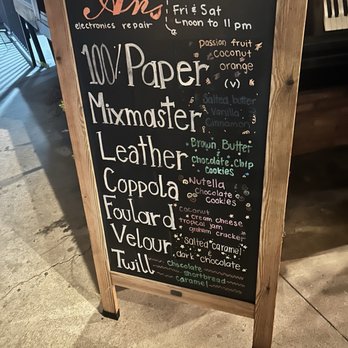 An's
electronics repair
Fri & Sat
noon to 11 pm
100% Paper
passion fruit
coconut
orange
(v)
Mixmaster
Salted butter
Vanilla
Cinnamon
Leather
Brown Butter
Chocolate Chip
Cookies
Coppola
Nutella
chocolate
cookies
Foulard
coconut
cream cheese
tropical jam
graham cracker
Velour
salted caramel
dark chocolate
Twill
chocolate
shortbread
caramel